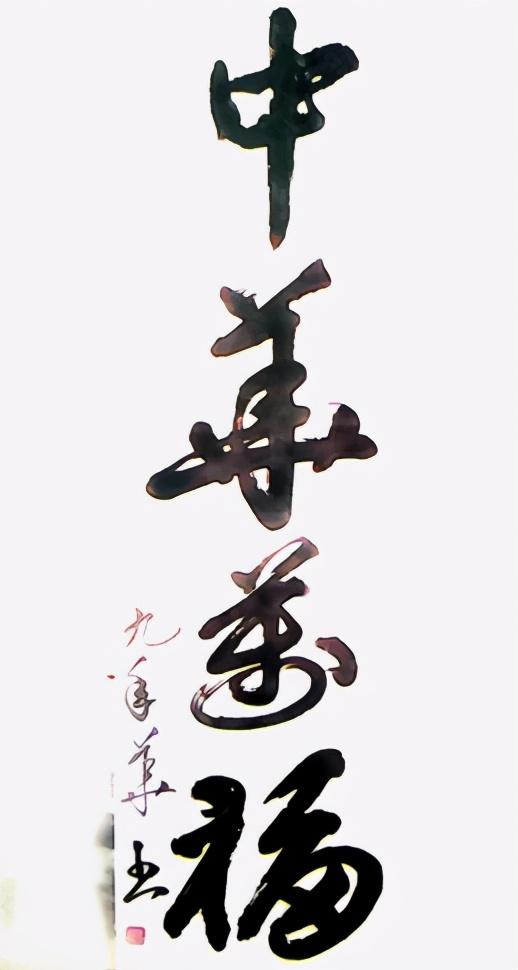 中華萬福
九年華王